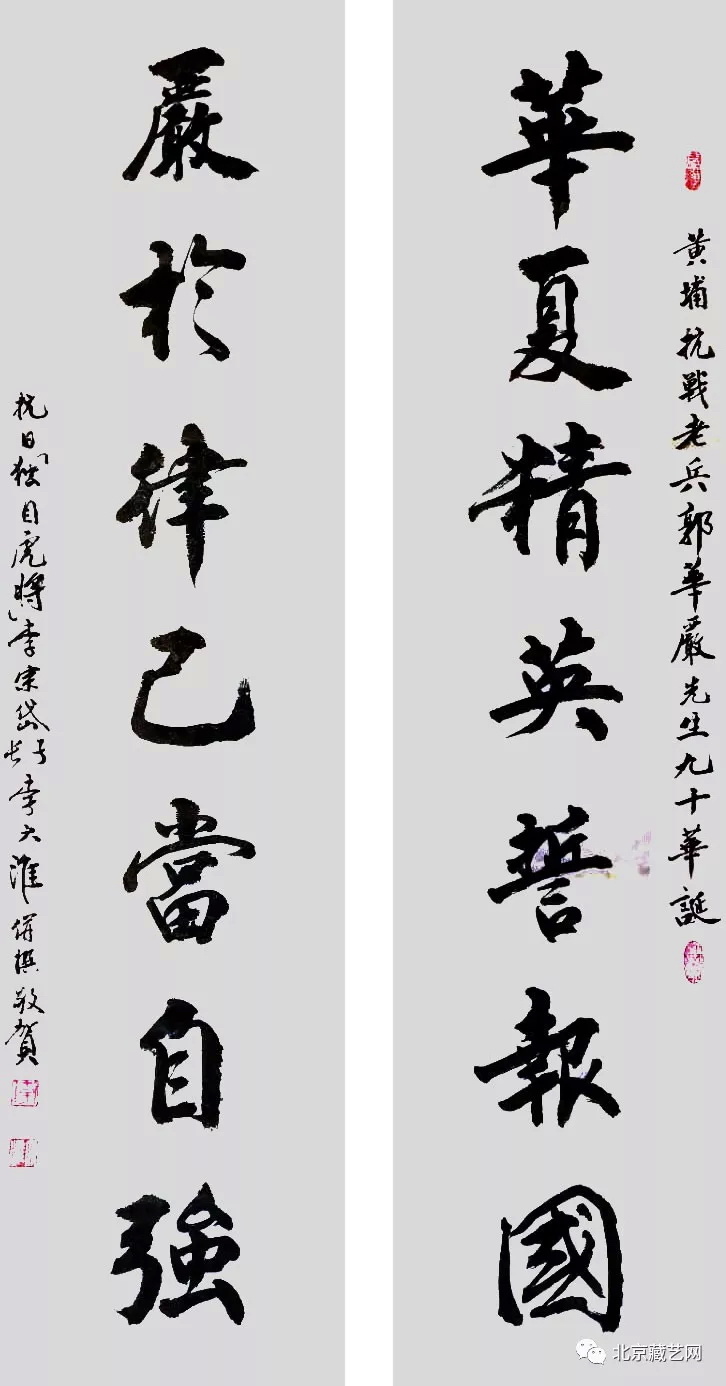 黄埔抗戰老兵郭華嚴先生九十華誕
華夏精英誓報國
嚴於律己當自強
抗日「獨目虎將」李宗岱長子李大淮併撰敬賀
北京藏艺网